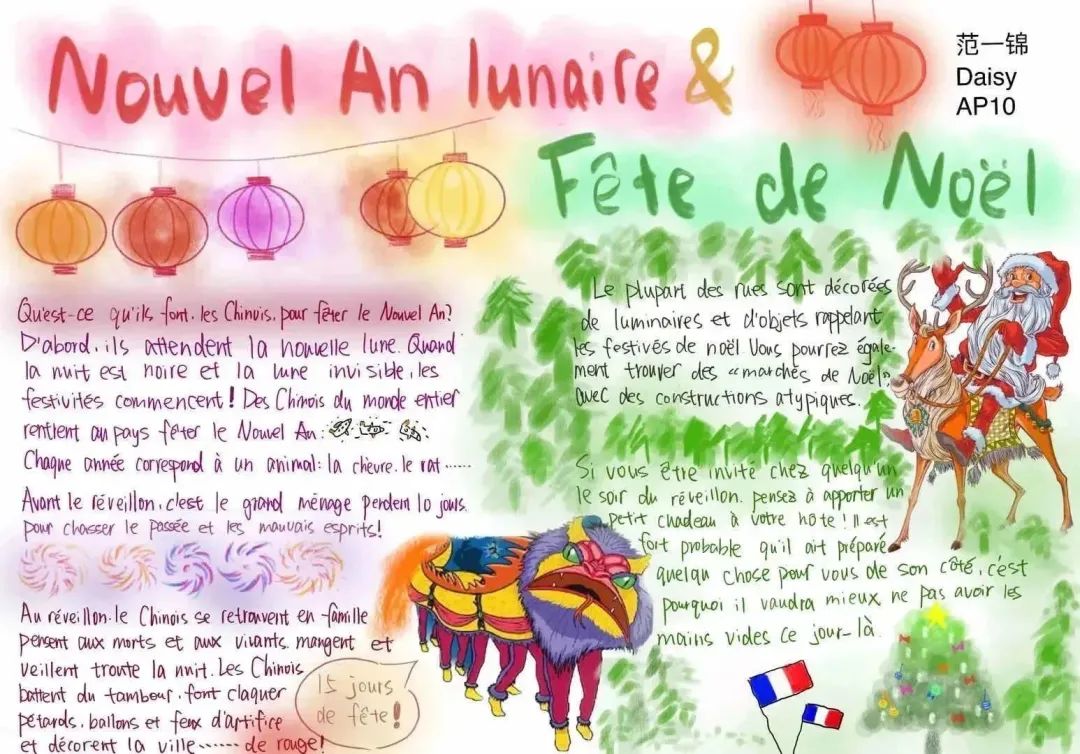 Nouvel An lunaire &
范一锦
Daisy
AP10
Fête de Noël
Qu'est-ce qu'ils font. les Chinois. pour fêter le Nouvel An?
D'abord. ils attendent la nouvelle lune. Quand
la nuit est noire et la lune invisible, les
festivités commencent! Des Chinois du monde entier
rentient au pays fêter le Nouvel An:
Chaque année correspond à un animal: la chèvre. le rat ......
Avant le réveillon. c'est le grand ménage pendent 10 jours.
pour chasser le passée et les mauvais esprits!
Au réveillon. le Chinois se retrouvent en famille
pensent aux morts et aux vivants. mangent et
veillent troute la nuit. Les Chinois
battent du tambour. font claquer
pétards, ballons et feux d'artifice
et décorent la ville ...... de rouge!
15 jours
de fête!
Le plupart des rues sont décorées
de luminaires et d'objets rappelant
les festivés de noël Vous pourrez égale-
ment trouver des «marchés de Noël»
avec des constructions atypiques.
Si vous être invité chez quelqu'un
le soir du réveillon. pensez à apporter un
petit chadeau à votre hôte! Il est
fort probable qu'il ait préparé
quelqu chose pour vous de son côté, c'est
pourquoi il vaudra mieux ne pas avoir les
mains vides ce jour-là.